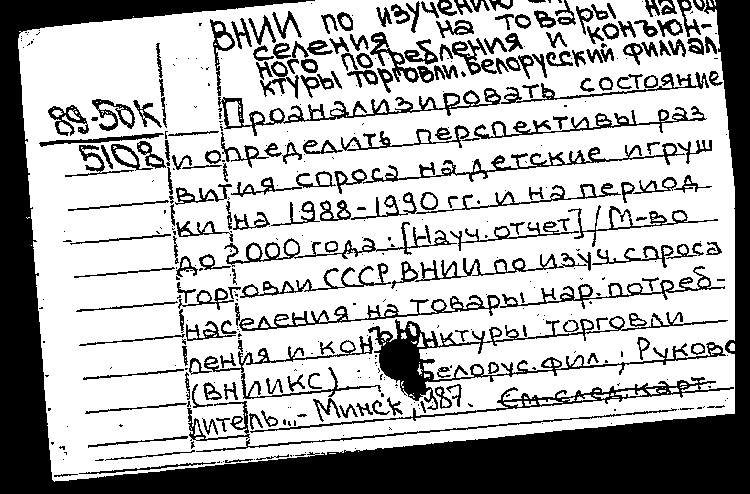 ВНИИ по изучению
селения на товары народ
ного потребления и конъюн-
ктуры торговли. Белорусский филиал.
89-50К
5108
Проанализировать состояние
и определить перспективы раз
вития спроса на детские игруш
ки на 1988-1990 гг. и на период
до 2000 года : [Науч. отчет] / М-во
торговли СССР, ВНИИ по изуч. спроса
населения на товары нар. потреб-
ления и конъюнктуры торговли
(ВНИИКС) Белорус. фил. ; Руково
дитель... - Минск, 1987. См. след. карт.